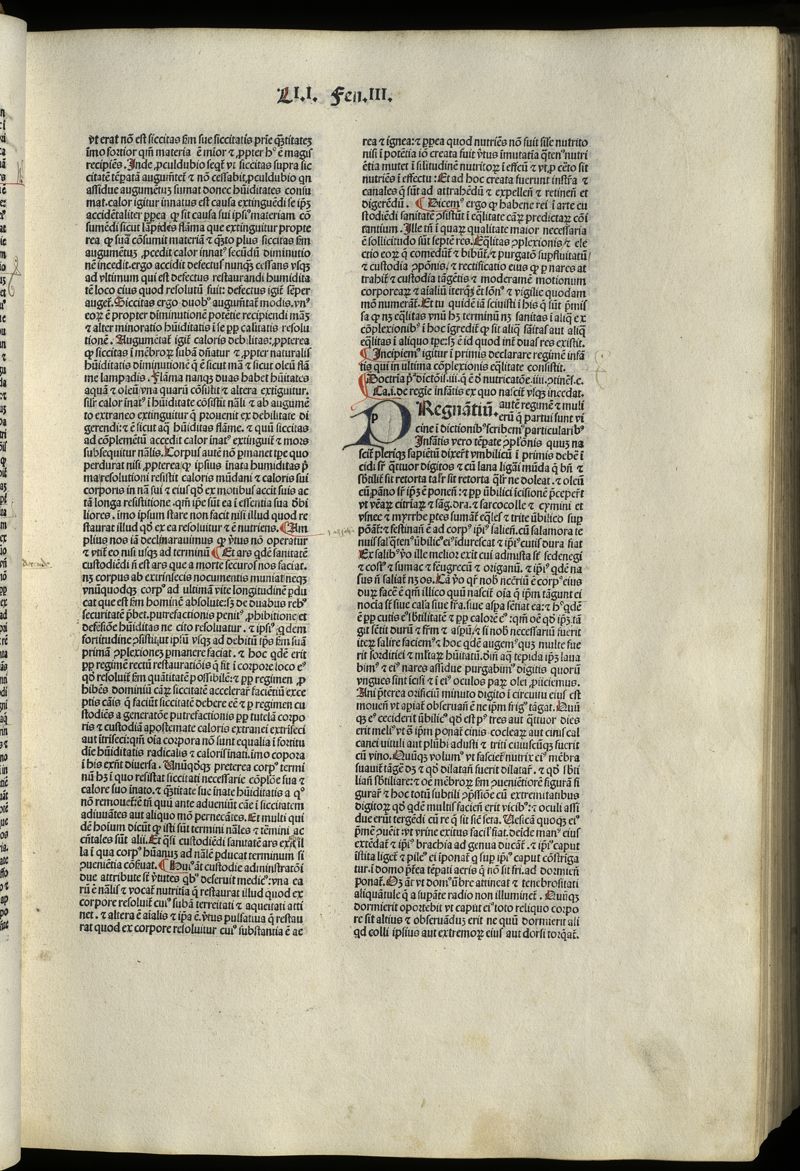 LI.I. Fen.III.
ỹt erat nõ est siccitas ẽm sue siccitatis
ĩmo fortior qm̃ materia ẽ mĩor & ꝓpter h° ẽ magis
recipiẽs. Inde ꝓculdubio seqt̃ vt siccitas supra sic
citatẽ tẽpatã augmẽtet̃ & nõ cessabit, ꝓculdubio qñ
assidue augumẽtus sumat donec hũiditates consu
mat. calor igitur innatus est causa extinguẽdi se ip̃z
accidẽtaliter ꝓpea ꝙ sit causa sui ipsiᵒ materiam cõ
sumẽdi sicut lãpidẽs flãma que extinguitur propte
rea ꝙ suã cõsumit materiã & q̃sto plus siccitas
augumẽtus ꝓcedit calor innatᵒ secũdũ diminutio
nẽ incedit. ergo accidit defectus nunq̃s cessans vsq̃s
ad vltimum qui est defectus restaurandi humidita
tẽ loco eius quod resolutũ fuit: defectus igit̃ sẽper
auget̃. Siccitas ergo duobᵒ augmẽtat̃ modis. vnᵒ
eoꝝ ẽ propter diminutionẽ potẽtie recipiendi
& alter minoratio hũiditatis ĩ se ꝓꝑ caliditatis resolu
tionẽ. Augumẽtat̃ igit̃ caloris debilitas: ꝓpterea
ꝙ siccitas ĩ mẽbroꝝ subã dñatur & ꝓpter naturalis
hũiditatis diminutionẽ q̃ ẽ sicut mã & sicut oleũ flã
me lampadis. Flãma nanqs duas habet hũitates
aquã & oleũ vna quarũ cõsistit & altera extiguitur.
silr̃ calor inatᵒ ĩ hũiditate cõsistit nãli & ab augumẽ
to extraneo extinguitur ꝙ prouenit ex debilitate di
gerendi: & ẽ sicut aq̃ hũiditas flãme. & quũ siccitas
ad cõplemẽtũ accedit calor inatᵒ extinguit̃ & mors
subsequitur nãlis. Corpus autẽ nõ pmanet tpe quo
perdurat nisi ꝓpterea ꝙ ipsius inata humiditas p̃
ma resolutioni resistit caloris mũdani & caloris sui
corporis in nã sui & eius qd̃ ex motibus accit suis ac
tã longa resisttione. qm̃ ipe sũt ea ĩ essentia sua debi
liores. imo ipsum stare non facit nisi illud quod re
staurat illud qd̃ ex ea resoluitur & ẽ nutriens. Am
plius nos iã declarauimus ꝙ ỹtus nõ operatur
& ỹtit̃ eo nisi vsqs ad terminũ Et ars qdẽ sanitatẽ
custodiẽdi ñ est ars que a morte securos nos faciat.
nz corpus ab extrinsecis nocumentis muniat neqs
vnũquodqs corpᵒ ad vltimã vite longitudinẽ pdu
cat que est sm̃ hominẽ absolute: sz de duabus rebᵒ
securitatẽ p̃bet. putrefactionis penitᵒ ꝓhibitione: et
defẽsiõe hũiditas ne cito resoluatur. & ipsiᵒ qdem
fortitudine ꝓsistit̃ ut ipsũ vsqs ad debitũ ip̃s sm̃ suã
primã ꝓplexionẽ ꝑmanere faciat. & hoc qdẽ erit
ꝓꝑ regimẽ rectũ restauratiõis q̃ sit ĩ corpore loco eᵒ
qd̃ resoluit̃ sm̃ quãtitatẽ possibilẽ: & ꝓꝑ regimen ꝓ
hibẽs dominiũ cãꝝ siccitatẽ accelerar̃ faciẽtiũ exce
ptis cãis q̃ faciũt siccitatẽ debere eẽ & p regimen cu
stodiẽs a generatõe putrefactionis ꝓꝑ tutelã corpo
ris & custodiã apostemate caloris extranei extrĩseci
aut ĩtriseci: qm̃ oĩa corpora nõ sunt equalia ĩ fortitu
die hũiditatis radicalis & calorĩs inati. imo copora
ĩ his exñt diuersa. Unũqdqs preterea corpᵒ termi
nũ hz ĩ quo resistat siccitati necessarie cõplõe sua &
calore suo inato. & q̃titate sue inate hũiditatis a qᵒ
nõ remouet̃: ẽt tñ quũ ante adueniũt cãe ĩ siccitatem
adiuuãtes aut aliquo mõ pernecãtes. Et multi qui
dẽ hoĩum dicũt ꝙ isti sũt termini nãles & tẽmini ac
cñtales sũt alii. Et qsi custodiẽdi sanitatẽ ars est il
la ĩ qua corpᵒ hũanuz ad nãlẽ pducat terminum si
ꝓueniẽtia cõseruat̃. Huiᵒ aut̃ custodie adĩnistratõi
due attribute st̃ ỹtutes qbᵒ deseruit mediᵒ: vna ea
rũ ẽ nãlis & vocat̃ nutritĩa q̃ restaurat illud quod ex
corpore resoluit̃ cuiᵒ subãna terreitati & aqueitati atti
net. & altera ẽ aĩalis & ip̃a ẽ ỹtus pulsatiua q̃ restau
rat quod ex corpore resoluitur cuiᵒ substantia ẽ ae
rea & ignea: & ꝓpea quod nutriẽs nõ suit sil̃e nutrito
nisi ĩ potẽtia iõ creata fuit ỹtus ĩmutatĩa q̃tenᵒ nutri
ẽtia mutet ĩ silitudinẽ nutritoꝝ ĩ effcũ & vt ꝓ certo sit
nutriẽs ĩ effectu: Et ad hoc creata fuerunt instr̃a &
canales q̃ sũt ad attrahẽdũ & expellen̄ & retinen̄ et
digerẽdũ. Dicemᵒ ergo ꝙ habene rei ĩ arte cu
stodiẽdi sanitatẽ ꝓsistũt ĩ eq̃litate cãꝝ predictaꝝ cõi
tantium. Ille tñ ĩ quaꝝ qualitate maior necessaria
ẽ sollicitudo sũt septẽ res. Eq̃litas ꝓplexionis & ele
ctio eoꝝ q̃ comedũt̃ & bibũt̃. & purgatõ supfluitatũ
& custodia ꝓpõnis. & rectificatio eius ꝙ p nares at
trahit̃ & custodia tãgẽtis & moderamẽ motionum
corporeaꝝ & aĩaliũ iterqs ẽt sõnᵒ & vigilie quodam
mõ numerãt̃. Et tu quidẽ iã sciuisti ĩ his q̃ sũt p̃mis
sa ꝙ nz eq̃litas vnũ hz terminũ nz sanitas ĩ aliq̃ ex
cõplexionibᵒ ĩ hoc igredit̃ ꝙ sit aliq̃ sãitas aut aliq̃
eq̃litas ĩ aliquo tpe: sz ẽ id quod int̃ duas res existit.
Incipiemᵒ igitur ĩ primis declarare regimẽ infã
tis qui in ultima cõplexionis eq̃litate consistit.
Doctrĩa p̃ᵃ dictõis .iii. q̃ ẽ ð nutricatõe .iiii. ꝓtinẽs .c.
Ca. i. de regie infãtis ex quo nascit̃ vsqs incedat.
PRegnãtiũ. autẽ regimẽ & muli
erũ q̃ partui sunt vi
cine ĩ dictionibᵒ scribemᵒ particularibᵒ
Infãtis vero tẽpate ꝓplõnis quuz na
scit̃ pleriqs sapiẽtũ dixer̃t vmbilicũ ĩ primis debẽ ĩ
cidi sr̃ q̃tuor digitos & cũ lana ligãi mũda q̃ bñ &
s̃btilit̃ sit retorta tal̃r sit retorta q̃lr̃ ne doleat. & oleũ
cũ pãno sr̃ ip̃z ẽ ponen̄: & ꝓꝑ ũbilici ĩcisionẽ p̃ceper̃t
vt ỹear̃ citriaꝝ & sãg. dra. & sarcocolle & cymini et
vsnee & myrrhe ptes sumãt̃ eq̃les & trite ũbilico sup
põãt̃: & festinañ ẽ ad corpᵒ ip̃iᵒ salien̄. cũ salamora te
nuissa: q̃tenᵒ ũbilicᵒ eiᵒ ĩdurescat & ip̃iᵒ cutis dura fiat
Ex salibᵒ ỹo ille melior exit cui admista sr̃ sedenegi
& costᵒ & sumac & fẽugrecũ & origanũ. & ip̃iᵒ qdẽ na
sus ñ saliat̃ nz os. Cã ỹo qr̃ nob̃ nccẽriũ ẽ corpᵒ eius
dur̃ facẽ ẽ qm̃ illico quũ nascit̃ oĩa q̃ ip̃m tãgunt ei
nocĩa sr̃ siue cãsa siue fr̃a. siue aspa sẽtiat ea: & hᵒ qdẽ
ẽ ꝓꝑ cutis eiᵒ s̃btilitatẽ & ꝓꝑ calorẽ eiᵒ: qm̃ oẽ qd̃ ip̃z tã
git sẽtit durũ & fr̃m & aspũ. & si nob̃ necessariũ fuerit
iteꝝ salire faciemᵒ & hoc qdẽ augemᵒ quz multe fue
rit sorditiei & ml̃taꝝ hũitatũ. dñi aq̃ tepida ip̃z laua
bimᵒ & eiᵒ nares assidue purgabimᵒ digitis quorũ
vngues sunt ĩcisi & ĩ eiᵒ oculos paꝝ olei ꝓiiciemus.
Ani p̃terea orificiũ minuto digito ĩ circuitu eius est
mouen̄ vt apiat̃ obseruañ ẽ ne ipm̃ frigᵒ tãgat. Quũ
q̃s eᵒ ceciderit ũbilicᵒ qd̃ est pᵒ tres aut q̃ttuor dies
erit meliᵒ vt ẽ ip̃m ponat̃ cinis cocleaꝝ aut cinis cal
canei uiuuli aut plũbi adusti & triti cuiuscũqs fuerit
cũ vino. Quũqs volumᵒ vt fasciet̃ nutrix eiᵒ mẽbra
suauit̃ tãgẽ dz & qd̃ dilatañ fuerit dilatar̃. & qd̃ s̃bti
liañ s̃btiliare: & oẽ mẽbroꝝ sm̃ ꝓueniẽtiorẽ figurã fi
gurar̃ & hoc totũ subtili ꝓp̃ssiõe cũ extremitatibus
digitoꝝ qd̃ qdẽ multis faciẽñ erit vicibᵒ: & oculi assi
due erũt tergẽdi cũ re q̃ sit siẽ sera. Uesica quoqs eiᵒ
p̃mẽᵒ ꝓueĩt vt vrine exitus facil̃ fiat. deĩde manᵒ eius
extẽdat̃ & ip̃iᵒ brachia ad genua ducãt̃. & ip̃iᵒ caput
ĩstita liget̃ & pileᵒ ei ĩponat̃ q̃ sup ip̃iᵒ caput cõstriga
tur. ĩ domo p̃tea tẽpati aeris q̃ nõ sit fri. ad dormien̄
ponat̃. Oz ãt vt domᵒ ũbre attineat & tenebrositati
aliquãtule q̃ a supãte radio non illuminet̃. Quũqs
dormierit oportebit vt caput eiᵒ toto reliquo corpo
re sit altius & obseruãduz erit ne quũ dormierit ali
qd colli ipsius aut extremoꝝ eius aut dorsi torq̃at̃.